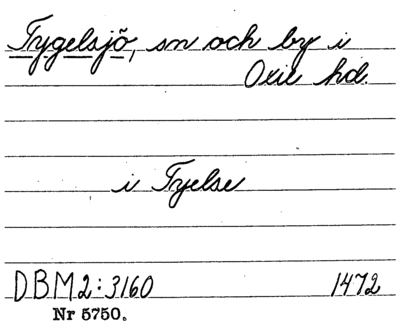 Tygelsjö, sn och by i
Oxie hd.
i Tyelse
DBM2:3160 1472
Nr 5750.